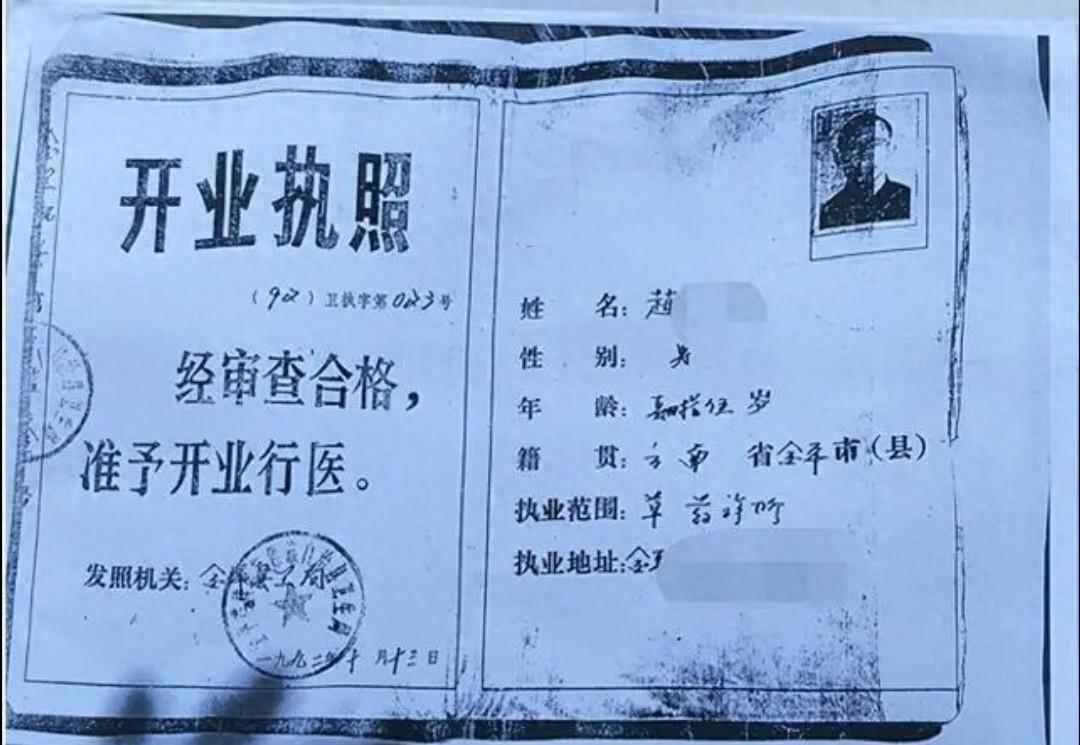 开业执照
（92）卫执字第023号
经审查合格，
准予开业行医。
发照机关：金平县卫局
一九九二年十月十三日
姓名：赵
性别：男
年龄：岁
籍贯：云南省金平市（县）
执业范围：草药诊所
执业地址：金平